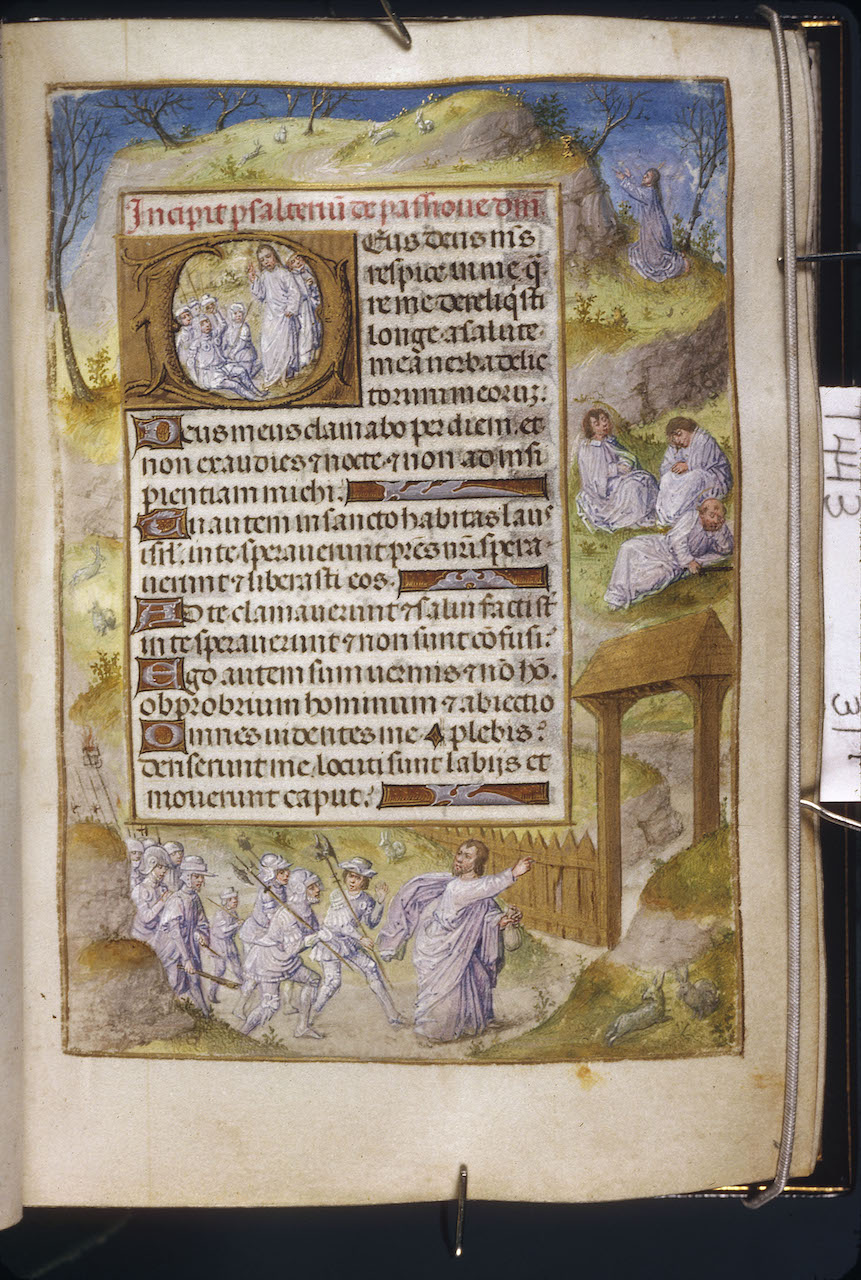 Incipit psalteriu̅ de passione dn̅i.
Deus deus m̅s
respice in me q̅
re me dereliq'sti
longe a salute
mea̅ uerba delic
torum meoruꝫ:
Deus meus clamabo per diem. et
non exaudies ⁊ nocte. ⁊ non ad insi
pientiam michi.
Tu autem in sancto habitas laus
isrl'. in te sperauerunt pr̅es nr̅i spera
uerunt ⁊ liberasti eos.
AD te clamauerunt ⁊ salui facti st̅
in te sperauerunt ⁊ non sunt co̅fusi:
Ego autem sum uermis ⁊ no̅ ho̅.
obprobrium hominum ⁊ abiectio
Omnes uidentes me plebis:
deriserunt me. locuti sunt labijs et
mouerunt caput:
443
31